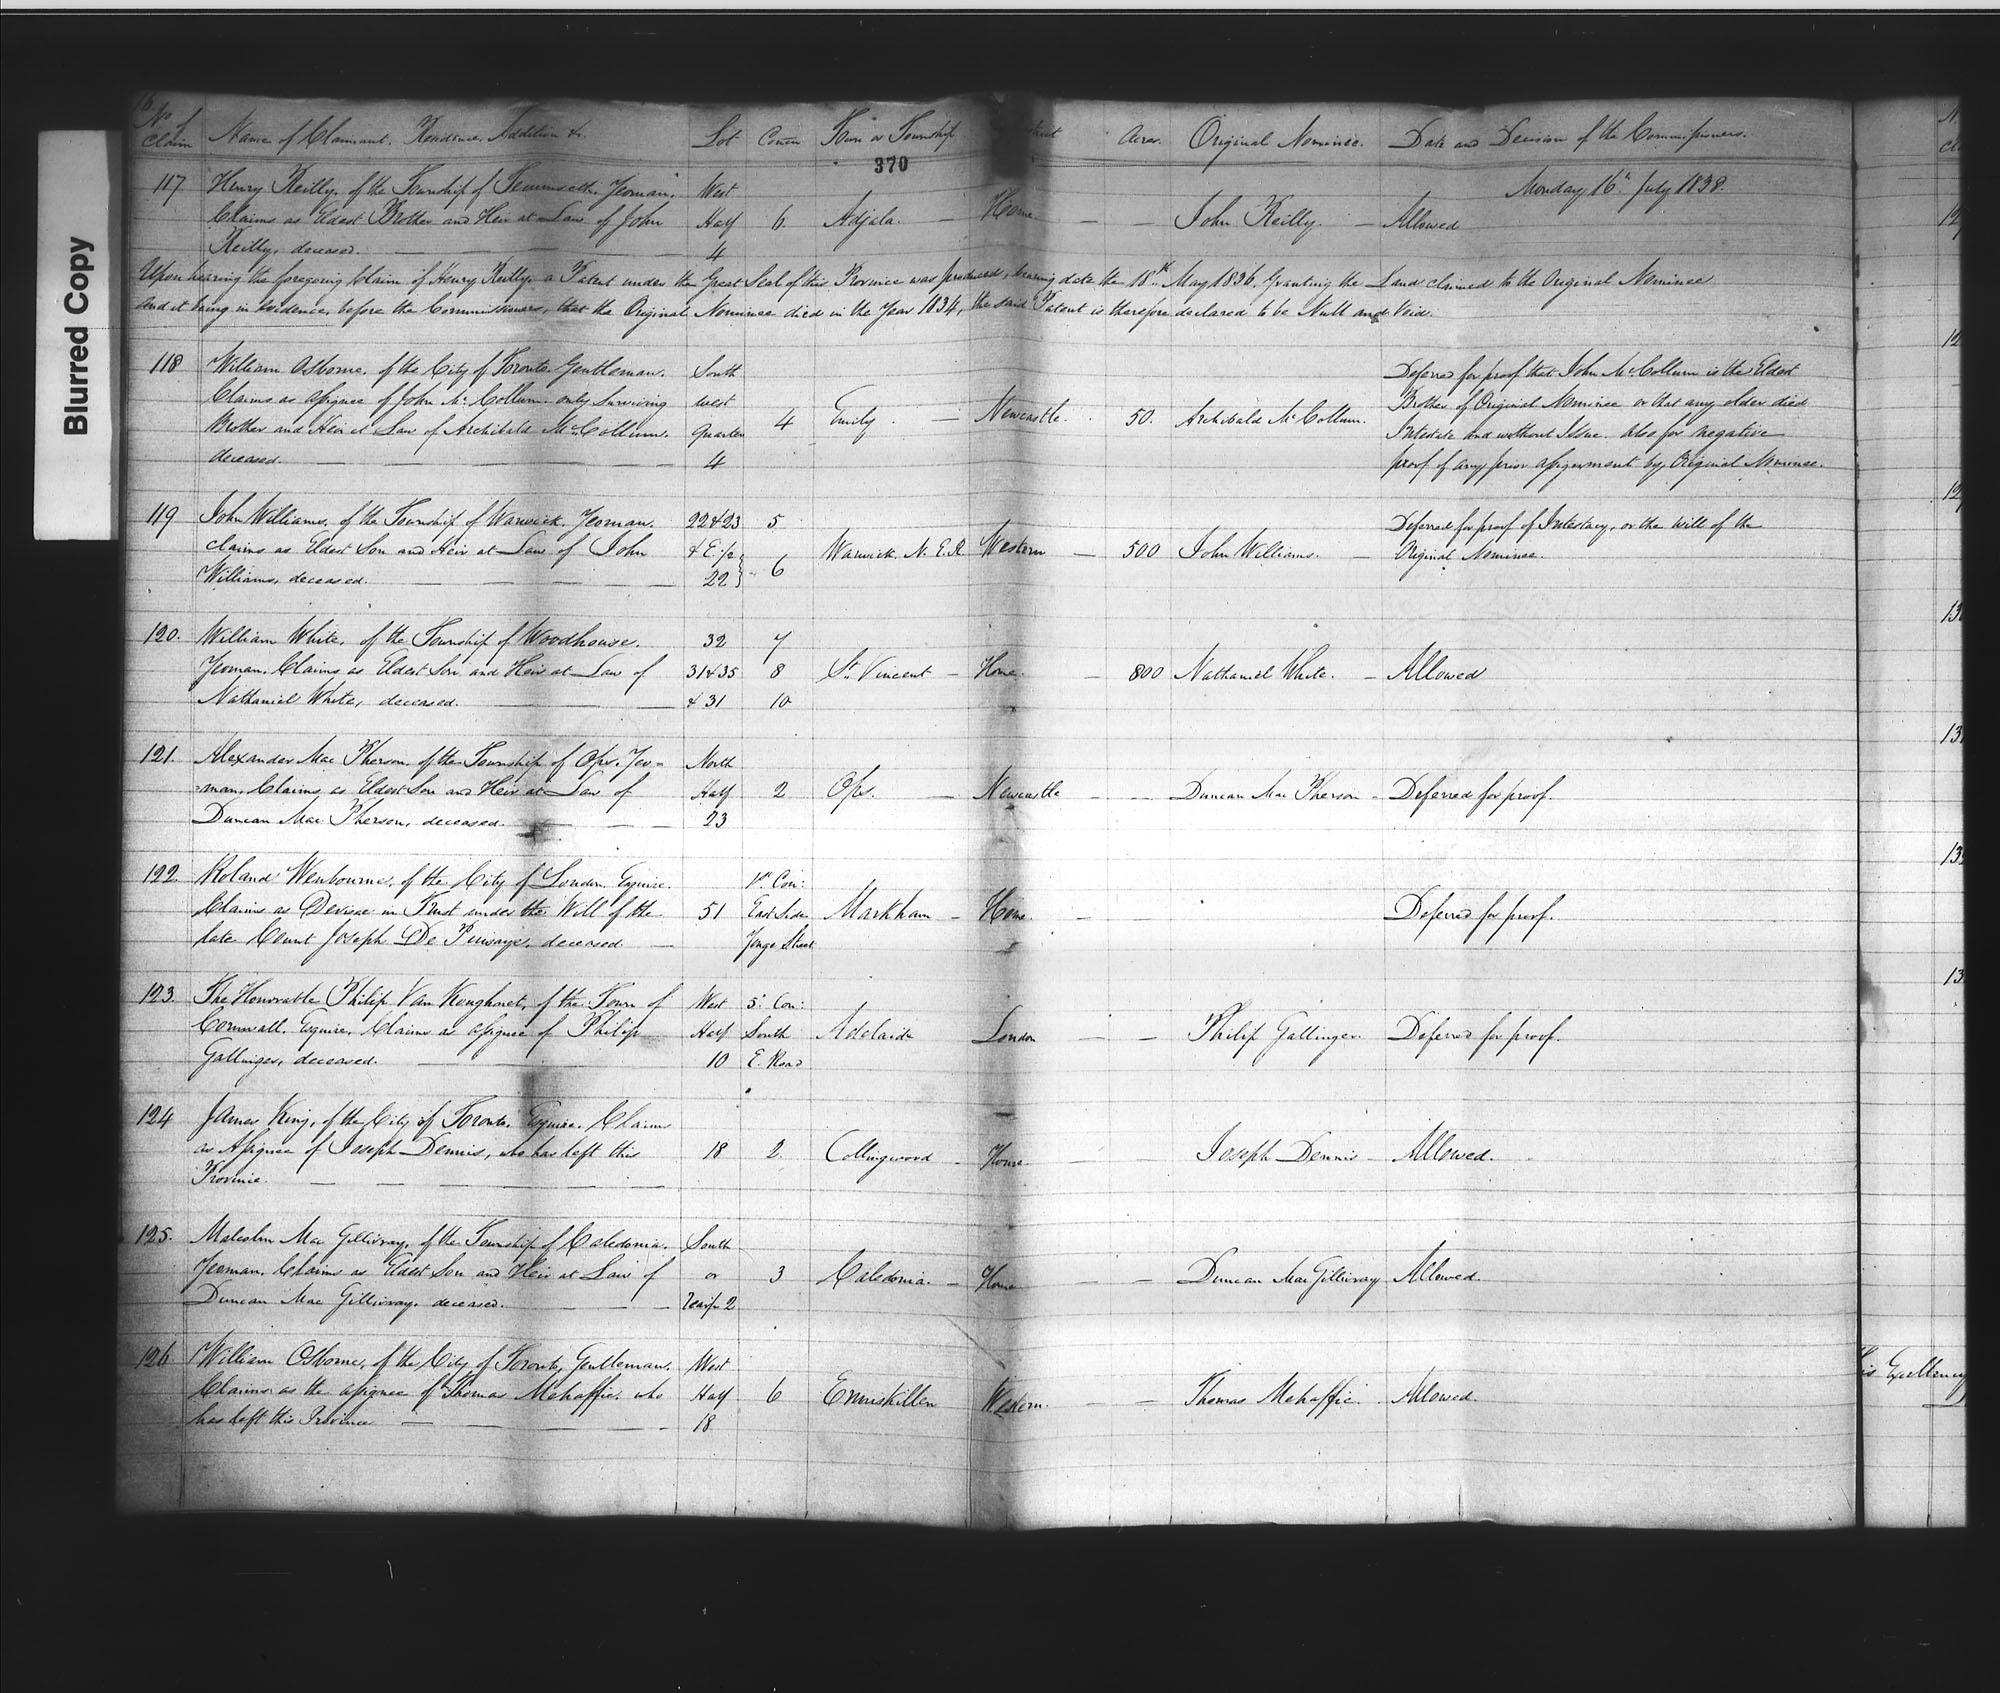 Blurred Copy
No. of Claim Name of Claimant. Residence, Addition &c. Lot Concn Town or Township Acres. Original Nominee. Date and Decision of the Commissioners.
370
Monday 16th July 1838.
117 Henry Reilly, of the Township of Tecumseth, Yeoman, West
Claims as Eldest Brother and Heir at Law of John Half 6. Adjala. — Home. — — John Reilly. — Allowed
Reilly, deceased. — — — 4
Upon hearing the foregoing Claim of Henry Reilly, a Patent under the Great Seal of this Province was produced, bearing date the 18th May 1836, Granting the Land claimed to the Original Nominee
and it being in evidence, before the Commissioners, that the Original Nominee died in the Year 1834, the said Patent is therefore declared to be Null and Void.
118 William Osborne, of the City of Toronto Gentleman. South Deferred for proof that John McCollum is the Eldest
Claims as assignee of John McCollum only surviving West Brother of Original Nominee or that any older died
Brother and Heir at Law of Archibald McCollum, Quarter 4 Emily. — Newcastle. 50. Archibald McCollum. Intestate and without Issue. also for negative
deceased. — — — 4 proof of any prior assignment by Original Nominee.
119 John Williams, of the Township of Warwick, Yeoman. 22 & 23 5 Deferred for proof of Intestacy, or the will of the
claims as Eldest Son and Heir at Law of John & E. 1/2 Warwick N. E. R Western — 500 John Williams. — Original Nominee.
Williams, deceased. — — — 22 } " 6
120. William White, of the Township of Woodhouse. 32 7
Yeoman, Claims as Eldest Son and Heir at Law of 31 & 35 8 St. Vincent — Home. — 800 Nathaniel White. — Allowed
Nathaniel White, deceased. — — & 31 10
121. Alexander Mac Pherson, of the Township of Ops, Yeo= North
=man, Claims as Eldest Son and Heir at Law of Half 2 Ops. — Newcastle — — Duncan Mac Pherson - Deferred for proof.
Duncan Mac Pherson, deceased. — — 23
122. Roland Wenbourne, of the City of London Esquire. 1st Con:
Claims as Devisee in Trust under the Will of the 51 East Side Markham — Home — Deferred for proof.
late Count Joseph De Puisaye, deceased — Yonge Street
123. The Honorable Philip Van Koughnet, of the Town of West 5. Con:
Cornwall, Esquire, Claims as assignee of Philip Half South Adelaide London — — Philip Gallinger. Deferred for proof.
Gallinger, deceased. — — 10 E. Road
124 James King, of the City of Toronto, Esquire. Claims
as Assignee of Joseph Dennis, who has left this 18 2. Collingwood — Home — — Joseph Dennis — Allowed.
Province. — — — — —
125. Malcolm Mac Gillivray, of the Township of Caledonia. South
Yeoman. Claims as Eldest Son and Heir at Law of or 3 Caledonia. — Home — — Duncan Mac Gillivray Allowed.
Duncan Mac Gillivray, deceased. — — 2
126 William Osborne, of the City of Toronto, Gentleman. West
Claims as the assignee of Thomas Mehaffie, who Half 6 Enniskillen Western. — — Thomas Mehaffie. Allowed.
has left this Province — — — 18
Excellency